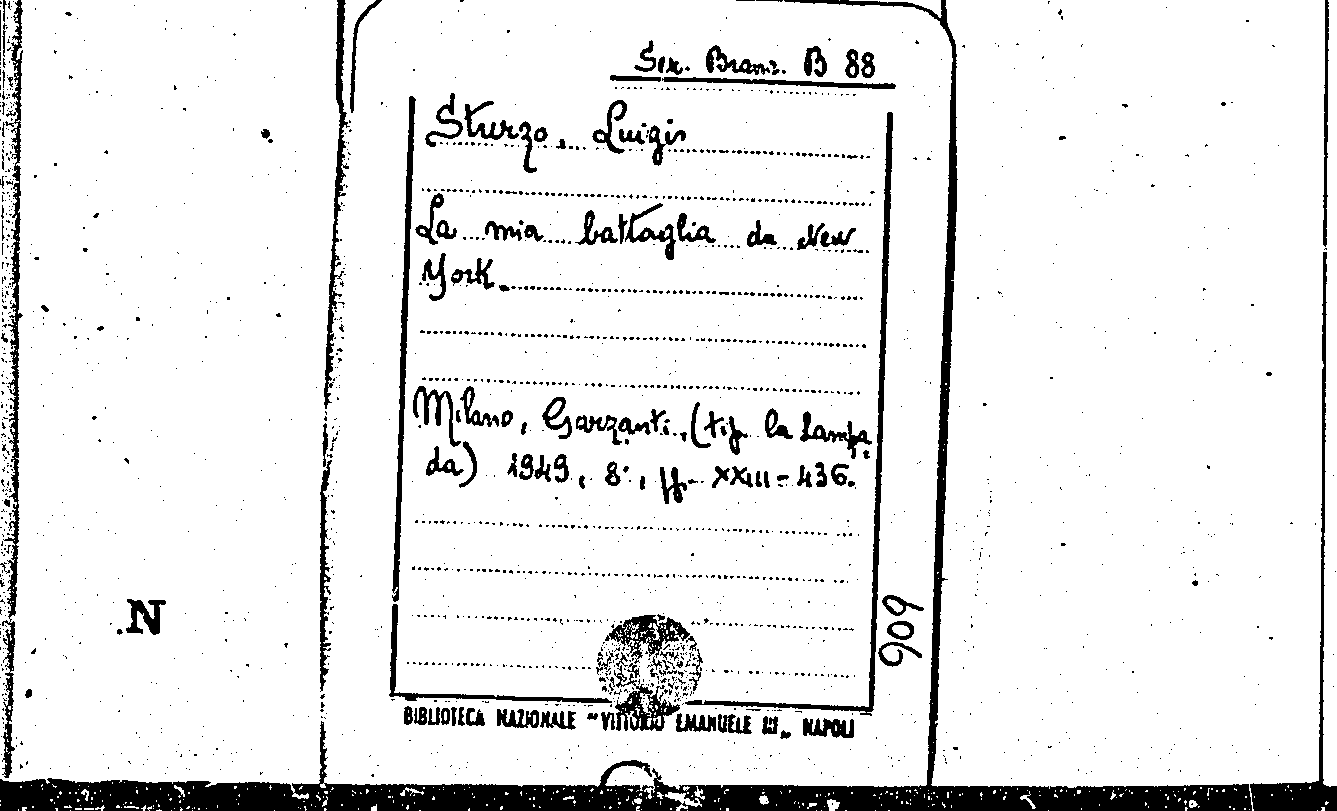 Sez. Branc. B 88
Sturzo, Luigi
La mia battaglia da New
York.
Milano, Garzanti, (tip. la Lampa
da) 1949, 8°, pp. XXIII-436.
909
.N
BIBLIOTECA NAZIONALE "VITTORIO EMANUELE III„ NAPOLI